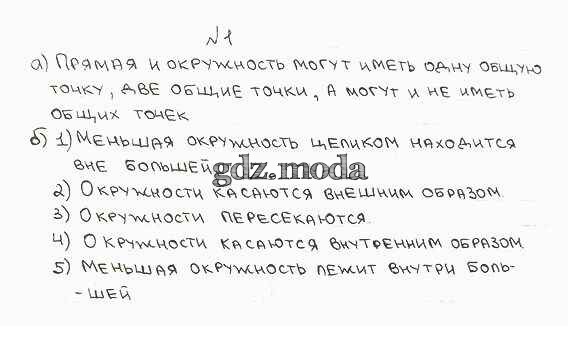 №1
а) Прямая и окружность могут иметь одну общую
точку, две общие точки, а могут и не иметь
общих точек
б) 1) Меньшая окружность целиком находится
вне большей
gdz.moda
2) Окружности касаются внешним образом.
3) Окружности пересекаются.
4) Окружности касаются внутренним образом
5) Меньшая окружность лежит внутри боль-
-шей